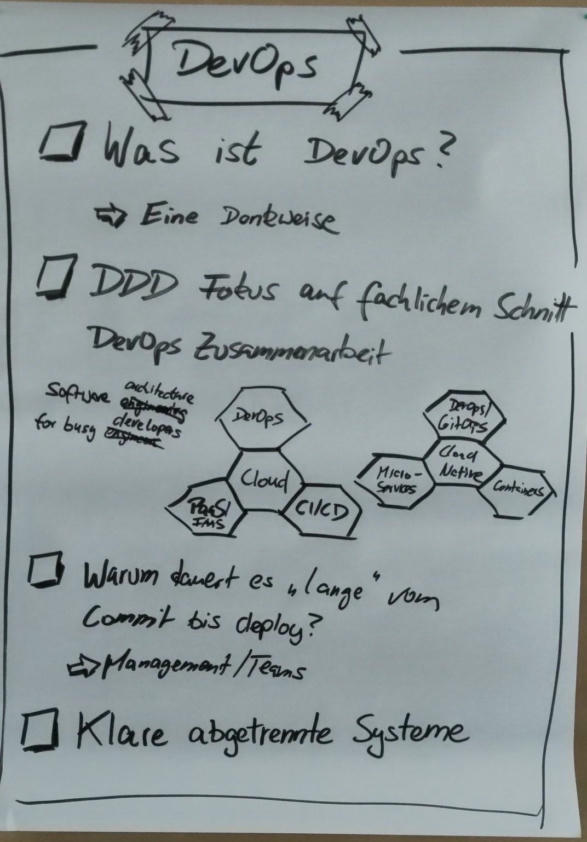 DevOps
Was ist DevOps?
⇒ Eine Denkweise
DDD Fokus auf fachlichem Schnitt
DevOps Zusammenarbeit
Software architecture
engineering
for busy developers
DevOps
Cloud
PaaS/
CI/CD
DevOps/
GitOps
Cloud
Native
Micro-
services
Containers
Warum dauert es „lange“ vom
Commit bis deploy?
⇒ Management/Teams
Klare abgetrennte Systeme